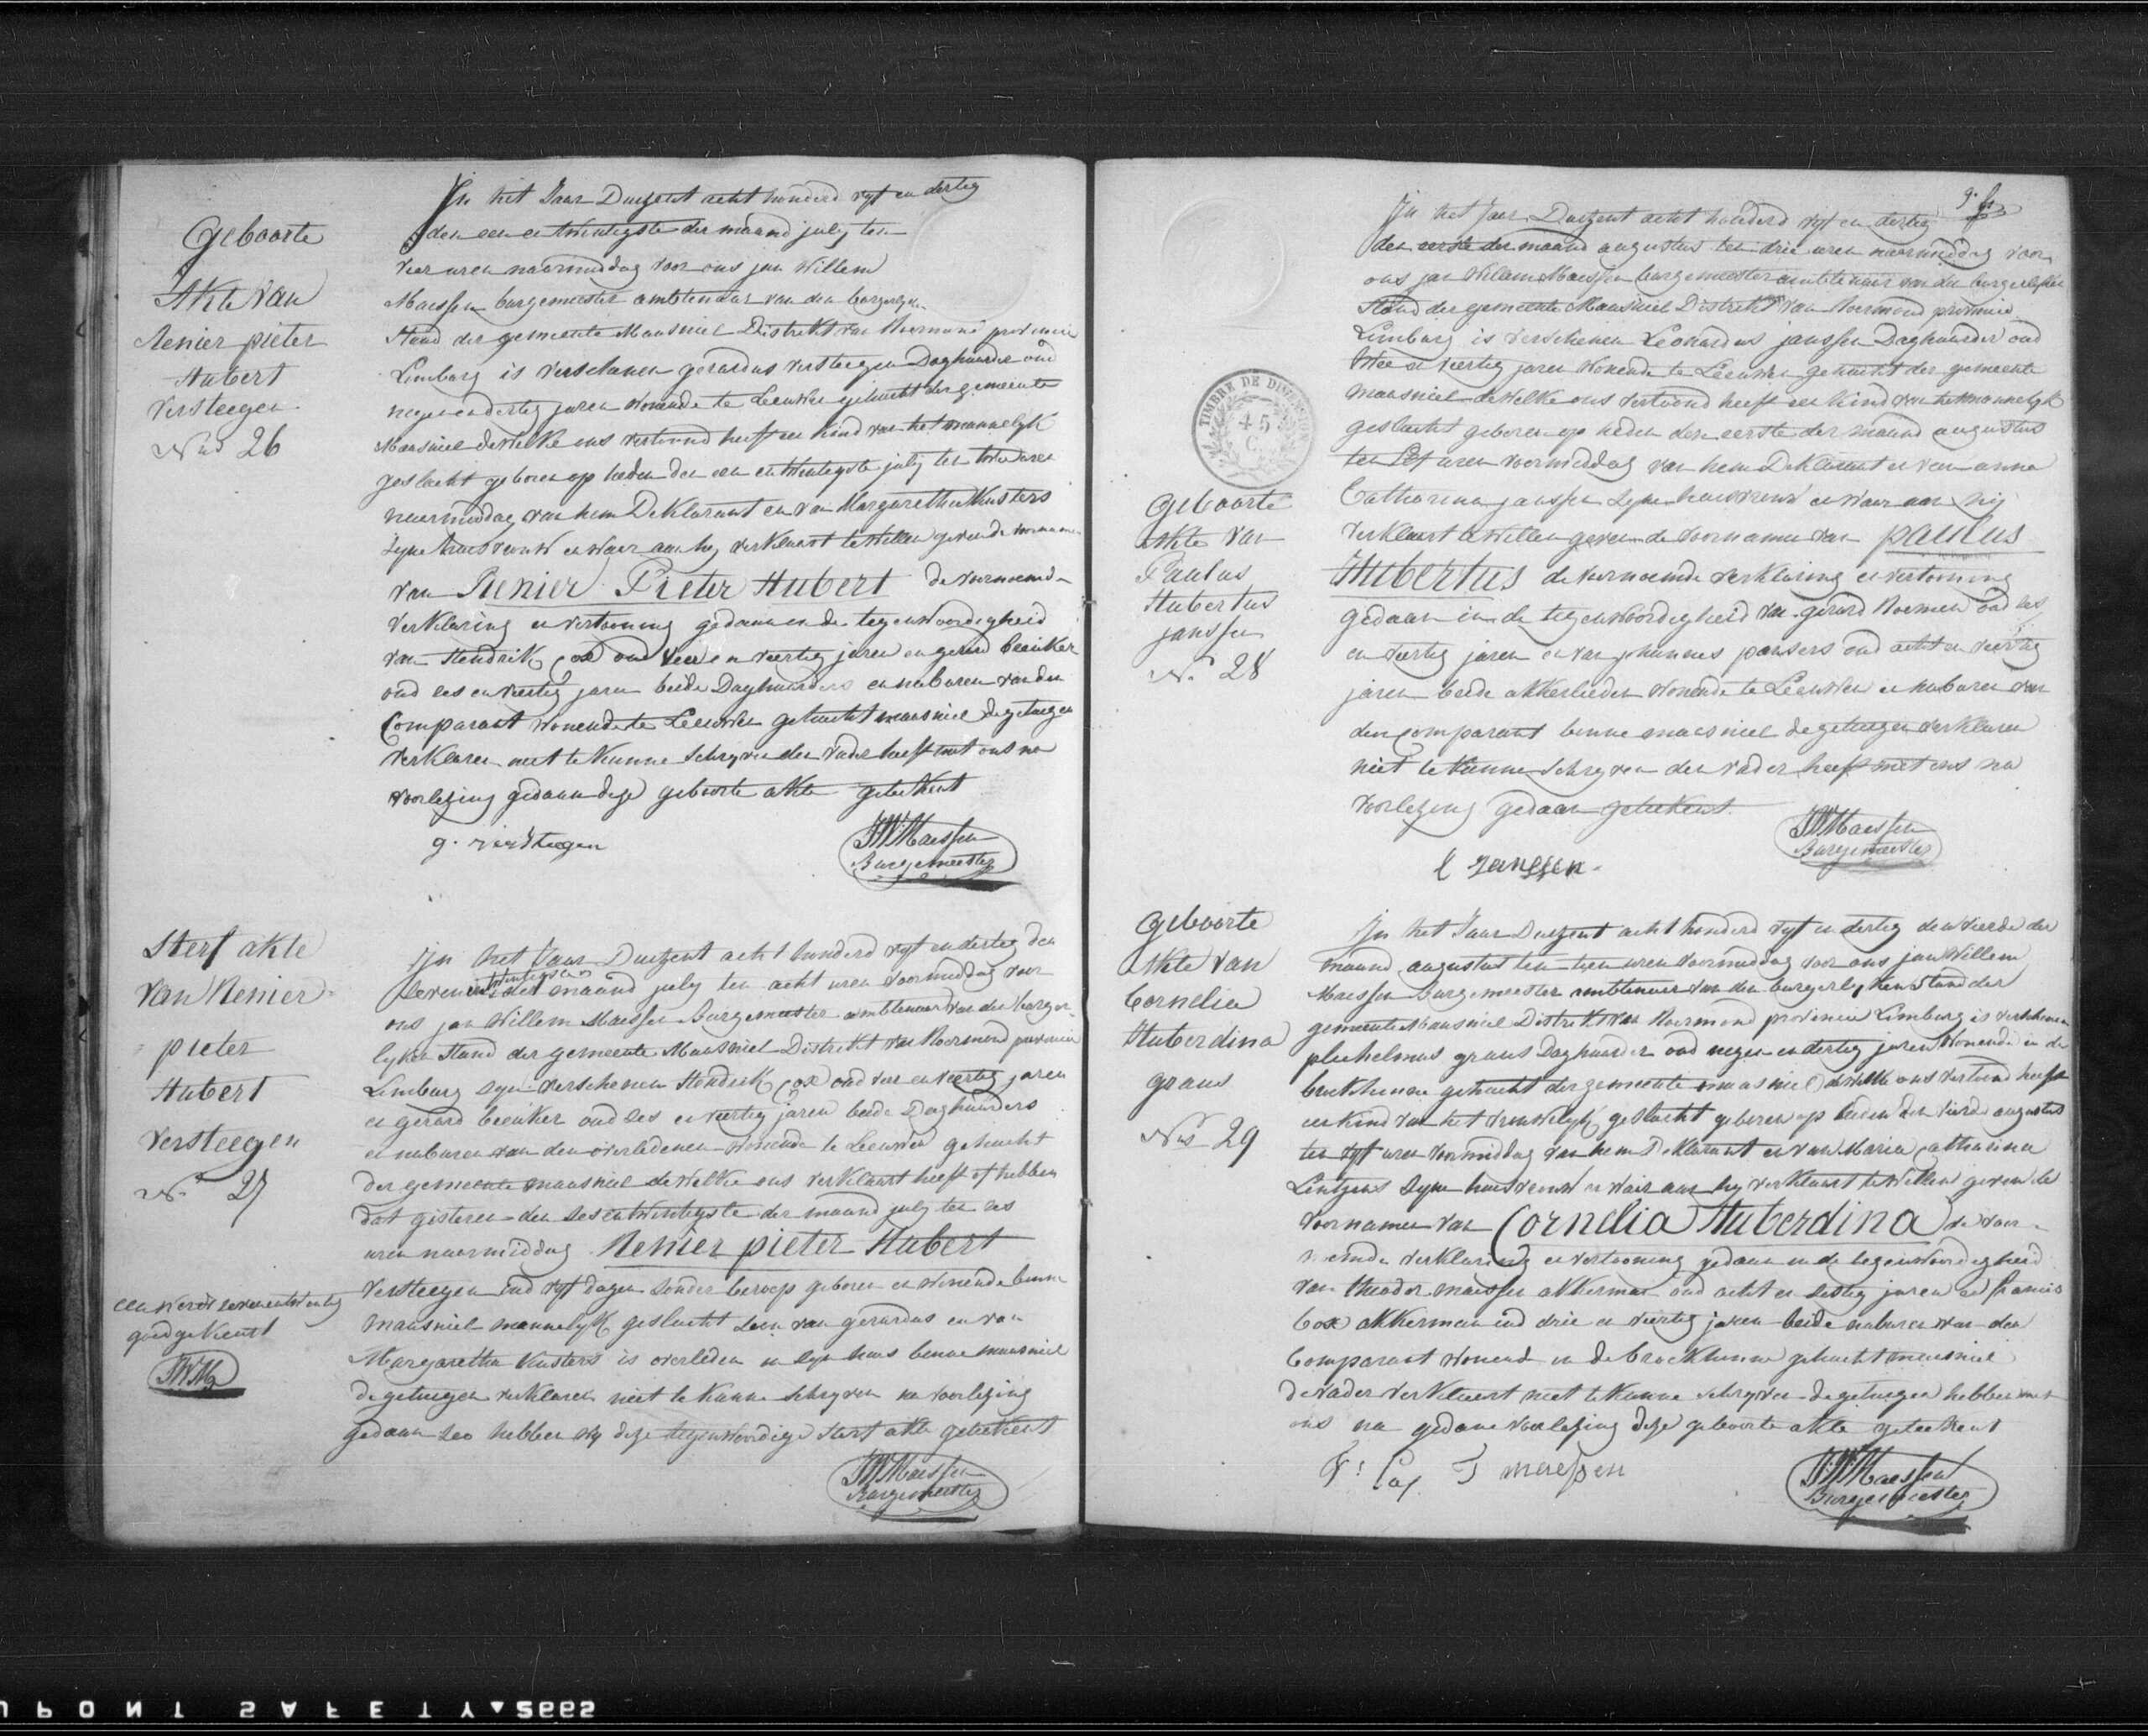 Geboorte
Akte van
Renier pieter
Hubert
Versteegen
No 26
In het Jaar Duezent acht honderd vyf en dertig
den een en twentigste der maand july ten
vier uren naarmiddag voor ons jan Willem
Maessen burgemeester ambtenaar van den burgerlyken
Stand der gemeente Maasniel Distrikt van Roermond provincie
Limburg is verschenen gerardus versteegen Daghuurder oud
negen en dertig jaren wonende te Leeuwen gehucht der gemeente
Maasniel dewelke ons vertoond heeft een kind van het mannelyk
geslacht geboren op heden den een en twentigste july ten twee uren
naermiddag van hem Deklarant en van Margaretha Kusters
zyne huisvrouw en waer aan hy verklaart te willen geven de voornamen
van Renier Pieter Hubert de voornoemde
verklaring en vertooning gedaan in de tegenwoordigheid
van Hendrik Cox oud vier en veertig jaren en gerard beenker
oud ses en veertig jaren beide Daghuurders en naburen van den
Comparant wonende te Leeuwen gehucht maasniel de getuigen
verklaren niet te kunne schryven den vader heeft met ons na
voorlezing gedaan deze geboorte akte geteekent
g. versteegen
JW Maessen
Burgemeester
Sterf akte
van Renier
pieter
Hubert
Versteegen
No 27
een werdt zevenentwentig
goedgekeurt
JWM
In het Jaar Duezent acht hunderd vyf en dertig den
zevenentwentigsten der maand july ten acht uren voormiddag voor
ons jan Willem Maessen Burgemeester ambtenaar van den burger-
lyken Stand der gemeente Maasniel Distrikt van Roermond provincie
Limburg zyn verschenen Hendrik Cox oud vier en veertig jaren
en gerard beenker oud ses en veertig jaren beide Daghuurders
en naburen van den overledenen wonende te Leeuwen gehucht
der gemeente maasniel dewelke ons verklaart heeft of hebben
dat gisteren den ses en twentigste der maand july ten ses
uren naarmiddag Renier pieter Hubert
Versteegen oud vyf dagen zonder beroep geboren en wonende binne
maasniel mannelyk geslacht zoon van gerardus en van
Margaretha Kusters is overleden in zyn huis benne maasniel
de getuigen verklaren niet te kunne schryven na voorlezing
gedaan zoo hebben wy deze tegenwoordige sterf akte geteekent
JW Maessen
Burgemeester
9.
TIMBRE DE DIMENSION
45
C
Geboorte
Akte van
Paulus
Hubertus
janssen
No 28
In het Jaer Duezent acht honderd vyf en dertig
den eerste der maand augustus ten drie uren naermiddag voor
ons jan Willem Maessen burgemeester ambtenaar van den burgerlyken
Stand der gemeente Maasniel Distrikt van Roermond provincie
Limburg is verschenen Leonardus janssen Daghuurder oud
twee en veertig jaren wonende te Leeuwen gehucht der gemeente
maasniel dewelke ons vertoond heeft een kind van het mannelyk
geslacht geboren op heden den eerste der maand augustus
ten elf uren voormiddag van hem Deklarant en van anna
Catharina janssen zyne huisvrouw en waar aan hij
verklaart te willen geven de voornamen van Paulus
Hubertus de voornoemde verklaring en vertooning
gedaan in de tegenwoordigheid van gerard Roemen oud ses
en veertig jaren en van johannes pansers oud acht en veertig
jaren beide akkerlieden wonende te Leeuwen en naburen van
den Comparant binne maasniel de getuigen verklaren
niet te kunne schryven den vader heeft met ons na
voorlezing gedaan geteekent.
JW Maessen
Burgemeester
L Janssen
Geboorte
Akte van
Cornelia
Huberdina
graus
No 29
In het Jaar Duezent acht honderd vyf en dertig den vierde der
maand augustus ten tien uren voormiddag voor ons jan Willem
Maessen Burgemeester ambtenaar van den burgerlyken Stand der
gemeente Maasniel Distrikt van Roermond provincie Limburg is verschenen
plechelmus graus Daghuurder oud negen en dertig jaren wonende in de
broekhenne gehucht der gemeente maasniel dewelke ons vertoond heeft
een kind van het vrouwelyk geslacht geboren op heden den vierde augustus
ten vyf uren voormiddag van hem Deklarant en van Maria Catharina
Lintzens zyne huisvrouw en waer aan hy verklaart te willen geven de
voornamen van Cornelia Huberdina de voor-
noemde verklaring en vertooning gedaan in de tegenwoordigheid
van theodor maessen akkerman oud acht en sestig jaren en francis
Cox akkerman oud drie en veertig jaren beide naburen van den
Comparant wonend in de broekhenne gehucht maasniel
de vader verklaert niet te kunne schryven de getuigen hebben met
ons na gedane voorlezing deze geboorte akte geteekent
F: Cox T maessen
JW Maessen
Burgemeester
DUPONT SAFETY 5662